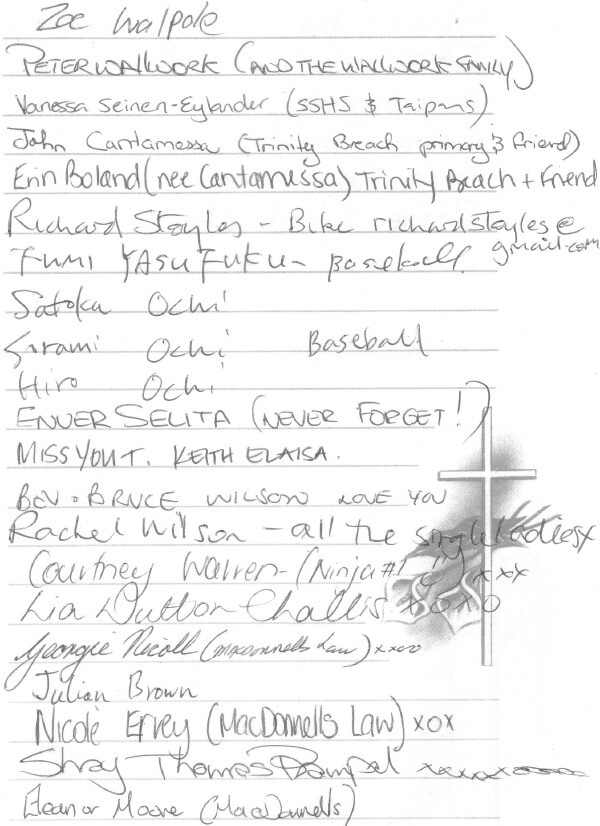 Zoe Walpole
PETER WALLWORK (AND THE WALLWORK FAMILY)
Vanessa Seinen-Eylander (SSHS & Taipans)
John Cantamessa (Trinity Beach primary & friend)
Erin Boland (nee Cantamessa) Trinity Beach + Friend
Richard Stayles - Bike richardstayles@
gmail.com
FUMI YASUFUKU - Baseball
Satoku Ochi
Ochi Baseball
Hiro Ochi
ENVER SELITA (NEVER FORGET!)
MISS YOU T. KEITH ELAISA.
BEV + BRUCE WILSON LOVE YOU
Rachel Wilson - all the single ladies x
Courtney Warren - (Ninja #1 ") xxx
Lia Dutton Challis xoxo
Georgie Nicoll (macdonnells Law) xxoo
Julian Brown
Nicole Ervey (MacDonnells Law) xox
Thomas
Eleanor Moore (MacDonnells)